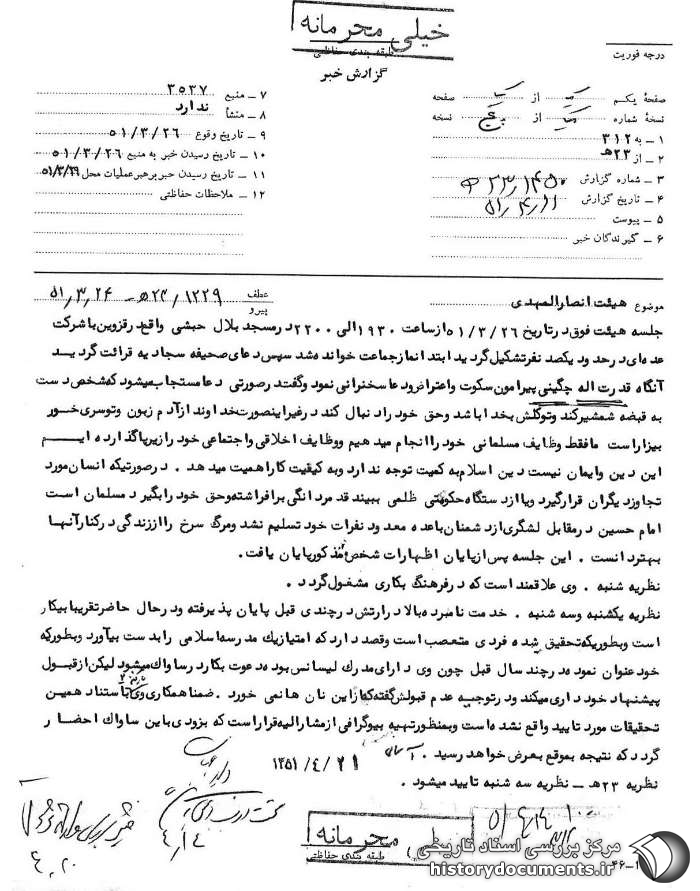 خیلی محرمانه
طبقه بندی حفاظتی
گزارش خبر
درجه فوریت
صفحهٔ یکم از صفحه
نسخهٔ شماره از نسخه
۱ ـ به ۳۱۲
۲ ـ از ۲۳هـ
۳ ـ شماره گزارش
۴ ـ تاریخ گزارش
۵ ـ پیوست
۶ ـ گیرندگان خبر
۷ ـ منبع ۳۵۳۷
۸ ـ منشأ ندارد
۹ ـ تاریخ وقوع ۵۱/۳/۲۶
۱۰ ـ تاریخ رسیدن خبر به منبع ۵۱/۳/۲۶
۱۱ ـ تاریخ رسیدن خبر برهبر عملیات محل ۵۱/۳/۲۹
۱۲ ـ ملاحظات حفاظتی
موضوع هیئت انصارالمهدی
عطف
پیرو
۱۲۲۹/۲۳هـ ـ ۵۱/۳/۲۴
جلسه هیئت فوق در تاریخ ۵۱/۳/۲۶ از ساعت ۱۹۳۰ الی ۲۲۰۰ در مسجد بلال حبشی واقع در قزوین با شرکت
عده‌ای در حدود یکصد نفر تشکیل گردید ابتدا نماز جماعت خوانده شد سپس دعای صحیفه سجادیه قرائت گردید
آنگاه قدرت اله چگینی پیرامون سکوت و اعتراض و دعا سخنرانی نمود و گفت در صورتی دعا مستجاب میشود که شخص دست
به قبضه شمشیر کند و توکلش بخدا باشد و حق خود را دنبال کند در غیر اینصورت خداوند از آدم زبون و توسری خور
بیزار است ما فقط وظایف مسلمانی خود را انجام میدهیم و وظایف اخلاقی و اجتماعی خود را زیر پا گذارده ایم
این دین و ایمان نیست دین اسلام به کمیت توجه ندارد و به کیفیت کار اهمیت میدهد . در صورتیکه انسان مورد
تجاوز دیگران قرار گیرد و یا از دستگاه حکومتی ظلمی ببیند قد مردانگی برافراشته و حق خود را بگیرد مسلمان است
امام حسین در مقابل لشگری از دشمنان با عده معدود نفرات خود تسلیم نشد و مرگ سرخ را از زندگی در کنار آنها
بهتر دانست . این جلسه پس از پایان اظهارات شخص مذکور پایان یافت.
نظریه شنبه . وی علاقمند است که در فرهنگ بکاری مشغول گردد .
نظریه یکشنبه و سه شنبه . خدمت نامبرده بالا در ارتش در چندی قبل پایان پذیرفته و در حال حاضر تقریبا بیکار
است و بطوریکه تحقیق شده فردی متعصب است و قصد دارد که امتیاز یک مدرسه اسلامی را بدست بیاورد و بطوریکه
خود عنوان نموده در چند سال قبل چون وی دارای مدرك لیسانس بوده دعوت بکار در ساواك میشود لیکن از قبول
پیشنهاد خودداری میکند و در توجیه عدم قبولش گفته که از این نان ها نمی خورد . ضمنا همکاری وی با استناد همین
تحقیقات مورد تایید واقع نشده است و بمنظور تهیه بیوگرافی از مشارالیه قرار است که بزودی باین ساواك احضار
گردد که نتیجه بموقع بعرض خواهد رسید .
۱۳۵۱/۴/۲۱
نظریه ۲۳هـ ـ نظریه سه شنبه تایید میشود .
خیلی محرمانه
طبقه بندی حفاظتی
مرکز بررسی اسناد تاریخی
historydocuments.ir